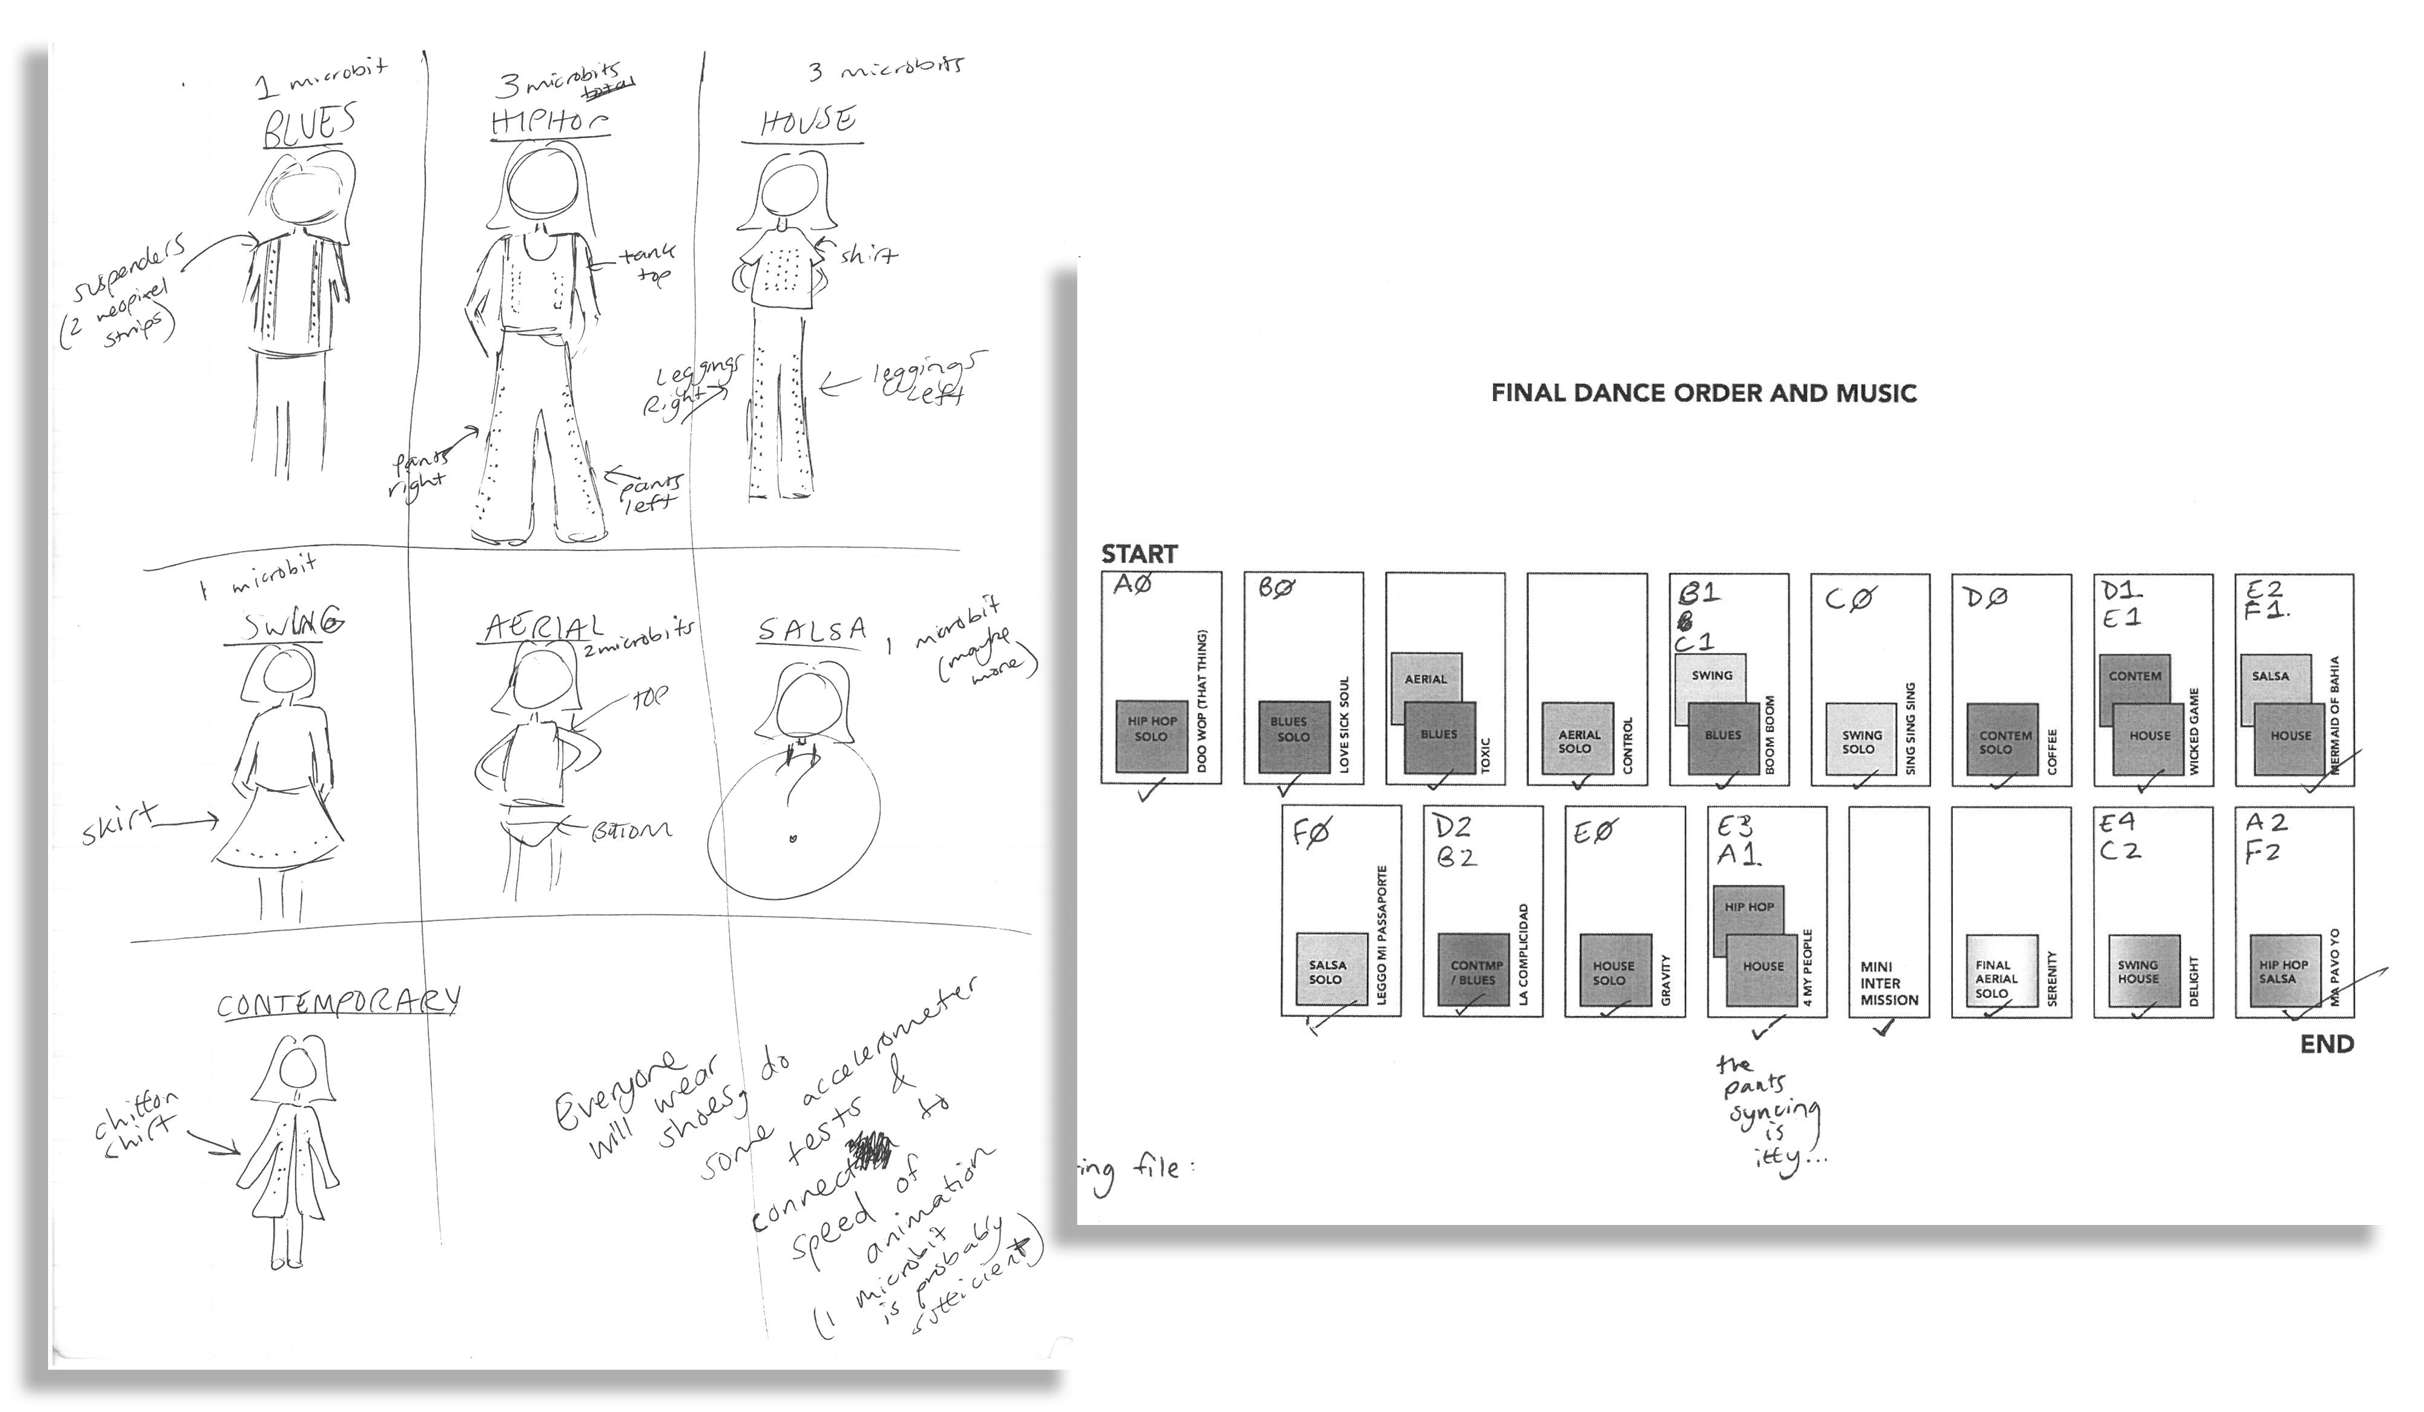 1 microbit
BLUES
suspenders
(2 neopixel
strips)
3 microbits
total
HIPHOP
tank
top
pants
right
pants
left
3 microbits
HOUSE
shirt
Leggings
Right
leggings
left
1 microbit
SWING
skirt
AERIAL
2 microbits
TOP
BOTTOM
SALSA
1 microbit
(maybe
more)
CONTEMPORARY
chiffon
shirt
Everyone
will wear
shoes, do
some accelerometer
tests &
connect to
speed of
animation
(1 microbit
is probably
sufficient)
FINAL DANCE ORDER AND MUSIC
START
AØ
HIP HOP
SOLO
DOO WOP (THAT THING)
BØ
BLUES
SOLO
LOVE SICK SOUL
AERIAL
BLUES
TOXIC
AERIAL
SOLO
CONTROL
B1
C1
SWING
BLUES
BOOM BOOM
CØ
SWING
SOLO
SING SING SING
DØ
CONTEM
SOLO
COFFEE
D1
E1
CONTEM
HOUSE
WICKED GAME
E2
F1.
SALSA
HOUSE
MERMAID OF BAHIA
FØ
SALSA
SOLO
LEGGO MI PASSAPORTE
D2
B2
CONTMP
/ BLUES
LA COMPLICIDAD
EØ
HOUSE
SOLO
GRAVITY
E3
A1.
HIP HOP
HOUSE
4 MY PEOPLE
MINI
INTER
MISSION
FINAL
AERIAL
SOLO
SERENITY
E4
C2
SWING
HOUSE
DELIGHT
A2
F2
HIP HOP
SALSA
MA PAVO YO
END
the
pants
syncing
is
iffy...
ing file: